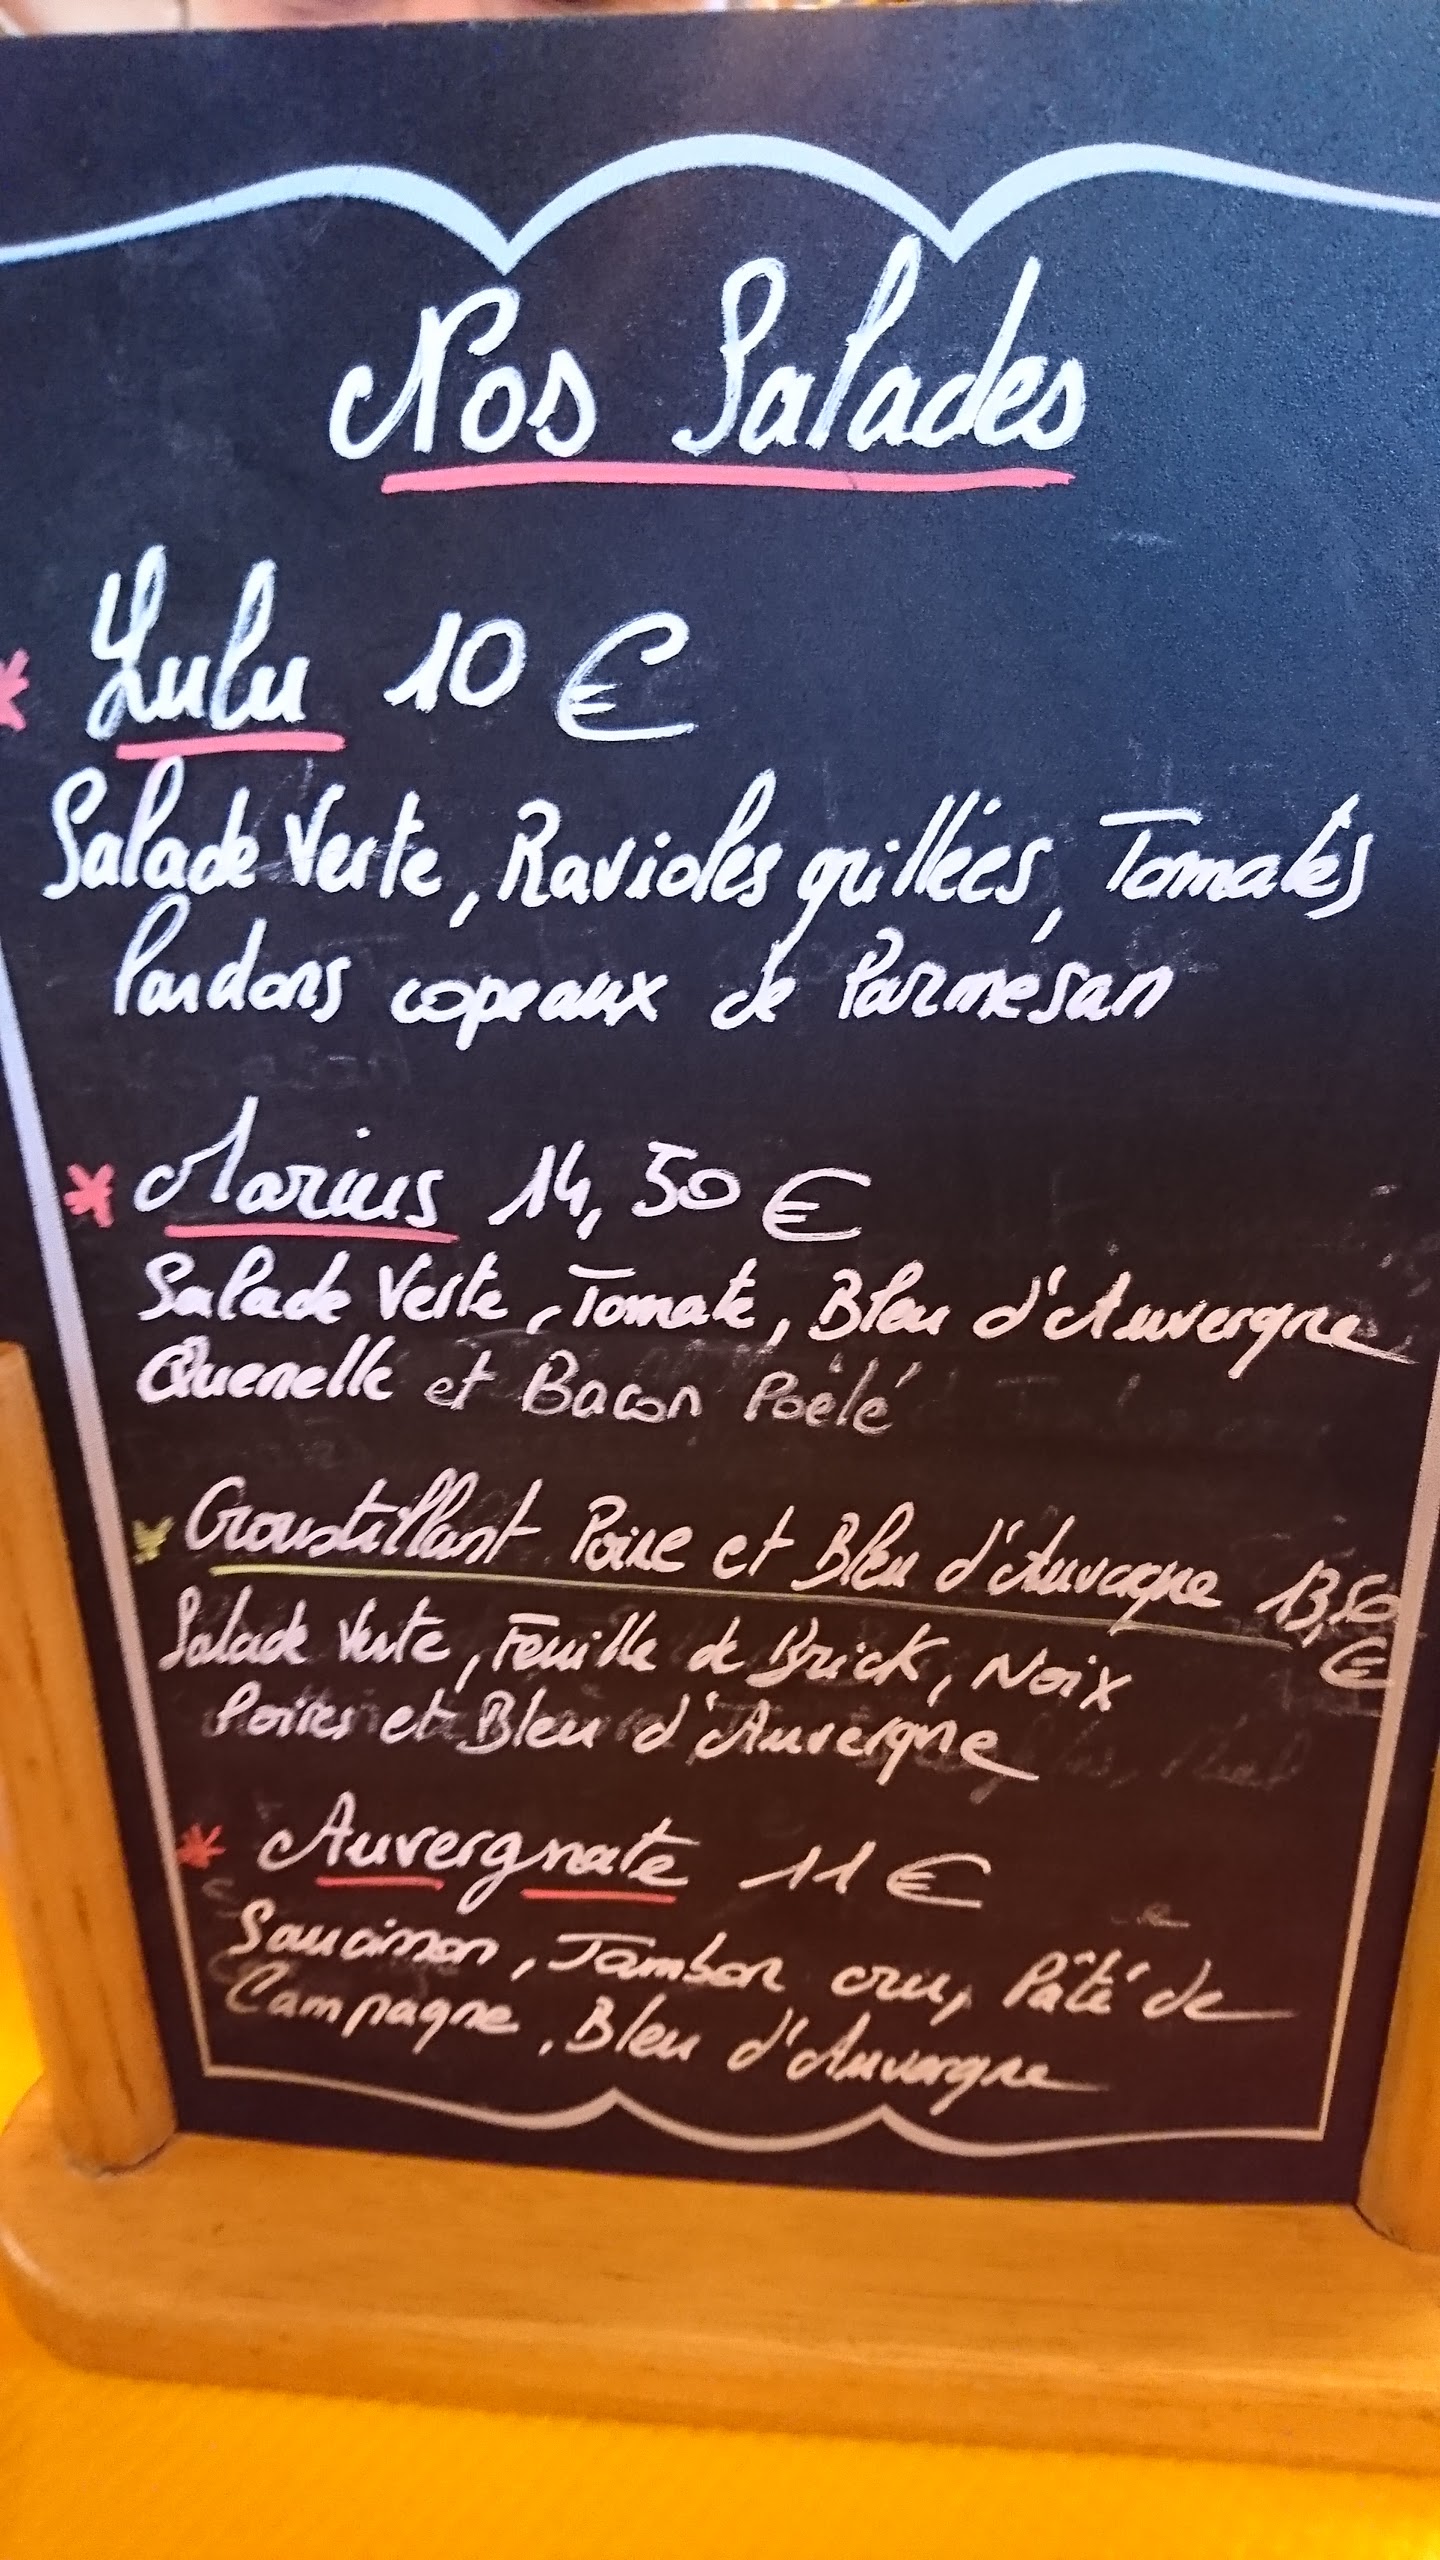 Nos Salades
Lulu 10 €
Salade Verte, Ravioles grillées, Tomates
Lardons copeaux de Parmesan
Marius 14,50 €
Salade Verte, Tomate, Bleu d'Auvergne,
Quenelle et Bacon Poêlé
Croustillant Poire et Bleu d'Auvergne 13,50
€
Salade Verte, Feuille de Brick, Noix
Poires et Bleu d'Auvergne
Auvergnate 11 €
Saucisson, Jambon cru, Pâté de
Campagne, Bleu d'Auvergne